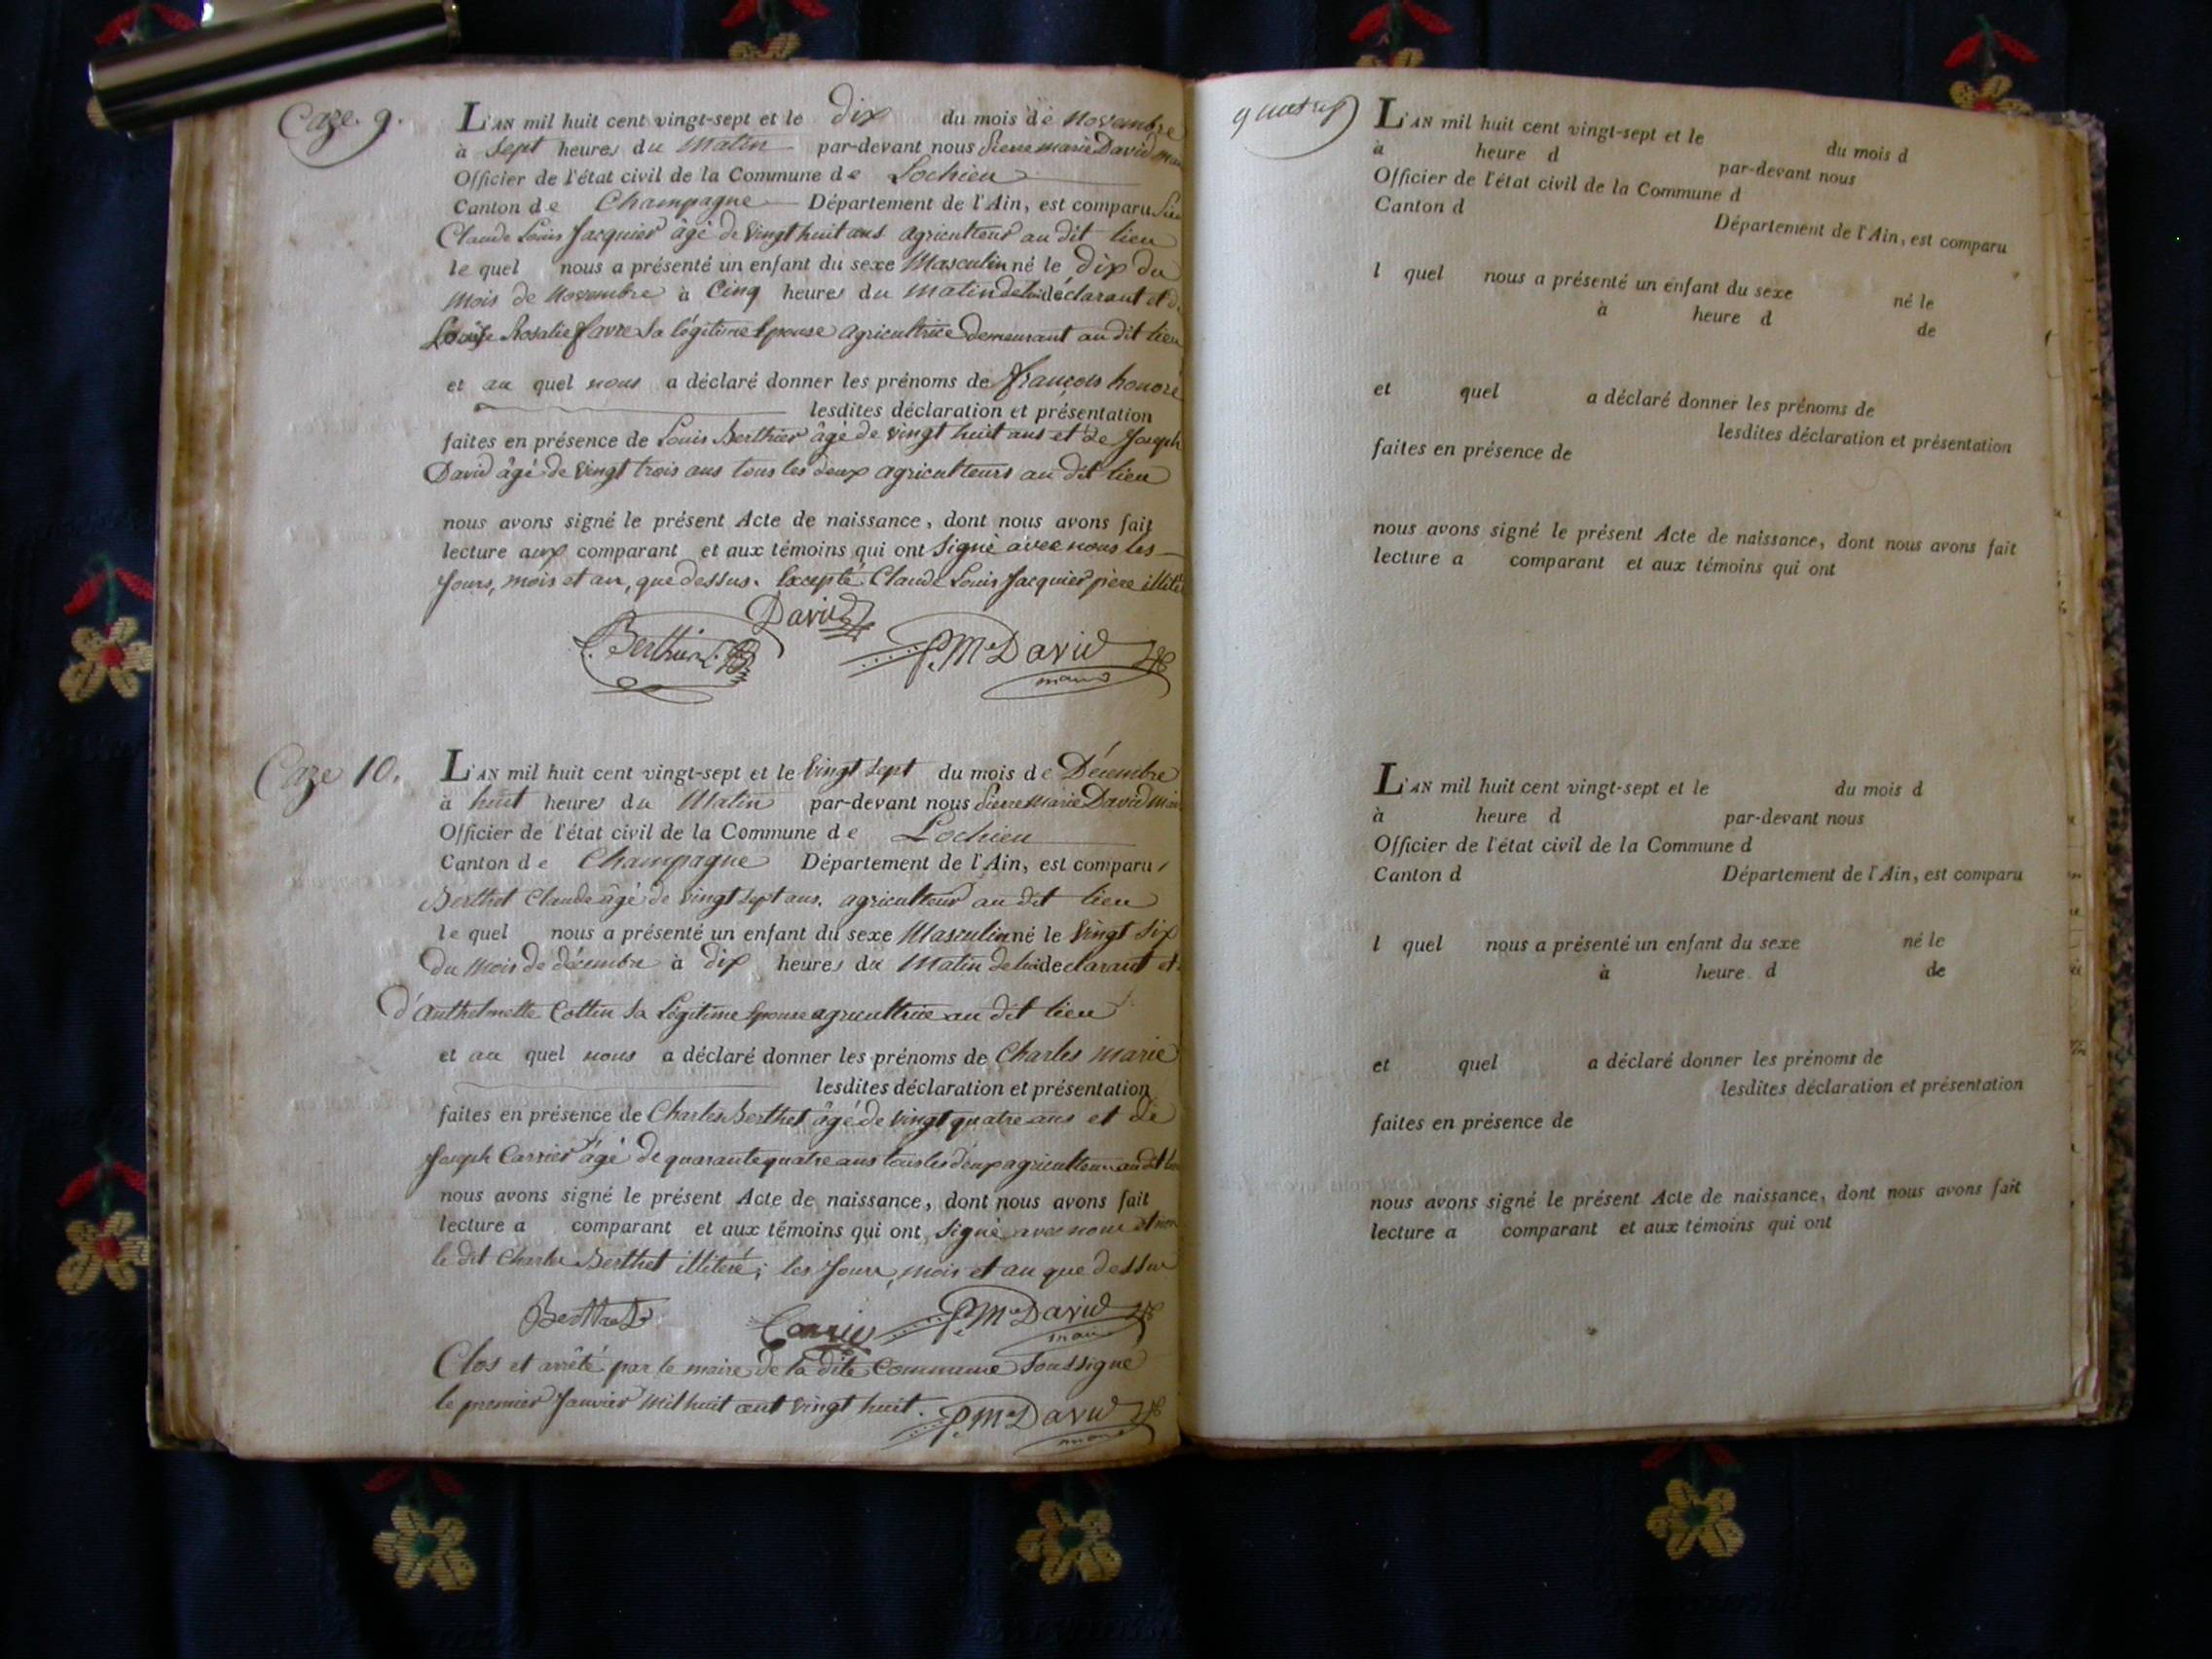 Caze. 9.
L'AN mil huit cent vingt-sept et le dix du mois de Novembre
à Sept heures du Matin par-devant nous Pierre Marie David
Officier de l'état civil de la Commune de Lochieu
Canton de Champagne Département de l'Ain, est comparu
Claude Louis Jacquier âgé de vingt huit ans agriculteur au dit lieu
le quel nous a présenté un enfant du sexe Masculin né le dix du
mois de Novembre à Cinq heures du matin de lui déclarant et
Rosalie favre Sa légitime Epouse agricultrice demeurant au dit lieu
et au quel nous a déclaré donner les prénoms de françois honoré
lesdites déclaration et présentation
faites en présence de Louis Berthier âgé de vingt huit ans et de Joseph
David âgé de vingt trois ans tous les deux agriculteurs au dit lieu
nous avons signé le présent Acte de naissance, dont nous avons fait
lecture aux comparant et aux témoins qui ont Signé avec nous les
Jours, mois et an, que dessus. Excepté Claude Louis Jacquier père
David
Berthier
P. Me David
maire
Caze 10.
L'AN mil huit cent vingt-sept et le vingt Sept du mois de Décembre
à huit heures du Matin par-devant nous Pierre Marie David
Officier de l'état civil de la Commune de Lochieu
Canton de Champagne Département de l'Ain, est comparu
Berthet Claude âgé de vingt sept ans. agriculteur au dit lieu
le quel nous a présenté un enfant du sexe Masculin né le vingt Six
du mois de décembre à dix heures du Matin de lui declarant et
d'Anthelmette Cottin Sa Légitime Epouse agricultrice au dit lieu
et au quel nous a déclaré donner les prénoms de Charles Marie
lesdites déclaration et présentation
faites en présence de Charles Berthet âgé de vingt quatre ans et de
Joseph Carrier âgé de quarante quatre ans tous les deux agriculteurs au dit
nous avons signé le présent Acte de naissance, dont nous avons fait
lecture a comparant et aux témoins qui ont Signé avec nous et non
le dit Charles Berthet illiteré; les Jours, mois et an que dessus
Berthet
Carrier
P. Me David
maire
Clos et arrêté par le maire de la dite Commune Soussigné
le premier Janvier mil huit cent vingt huit.
P. Me David
maire
L'AN mil huit cent vingt-sept et le du mois d
à heure d par-devant nous
Officier de l'état civil de la Commune d
Canton d Département de l'Ain, est comparu
l quel nous a présenté un enfant du sexe né le
à heure d de
et quel a déclaré donner les prénoms de
lesdites déclaration et présentation
faites en présence de
nous avons signé le présent Acte de naissance, dont nous avons fait
lecture a comparant et aux témoins qui ont
L'AN mil huit cent vingt-sept et le du mois d
à heure d par-devant nous
Officier de l'état civil de la Commune d
Canton d Département de l'Ain, est comparu
l quel nous a présenté un enfant du sexe né le
à heure d de
et quel a déclaré donner les prénoms de
lesdites déclaration et présentation
faites en présence de
nous avons signé le présent Acte de naissance, dont nous avons fait
lecture a comparant et aux témoins qui ont